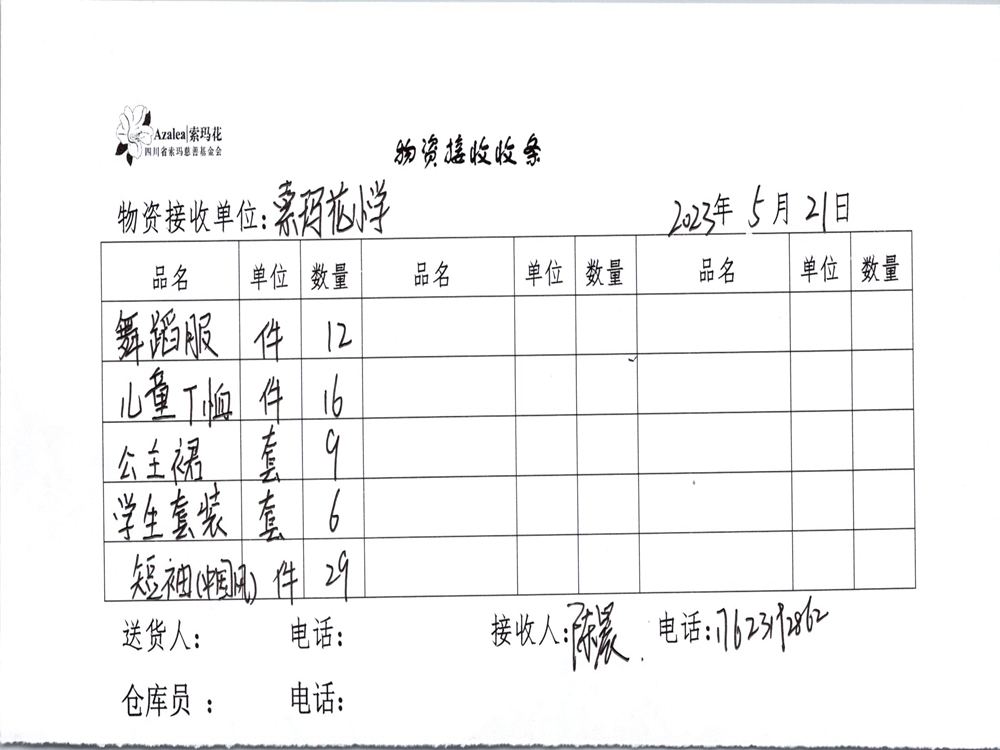 Azalea|索玛花
四川省索玛慈善基金会
物资接收收条
物资接收单位:索玛花小学 2023年 5月 21日
品名 单位 数量 品名 单位 数量 品名 单位 数量
舞蹈服 件 12
儿童T恤 件 16
公主裙 套 9
学生套装 套 6
短袖(中国风) 件 29
送货人: 电话: 接收人:陈晨. 电话:
仓库员 : 电话: